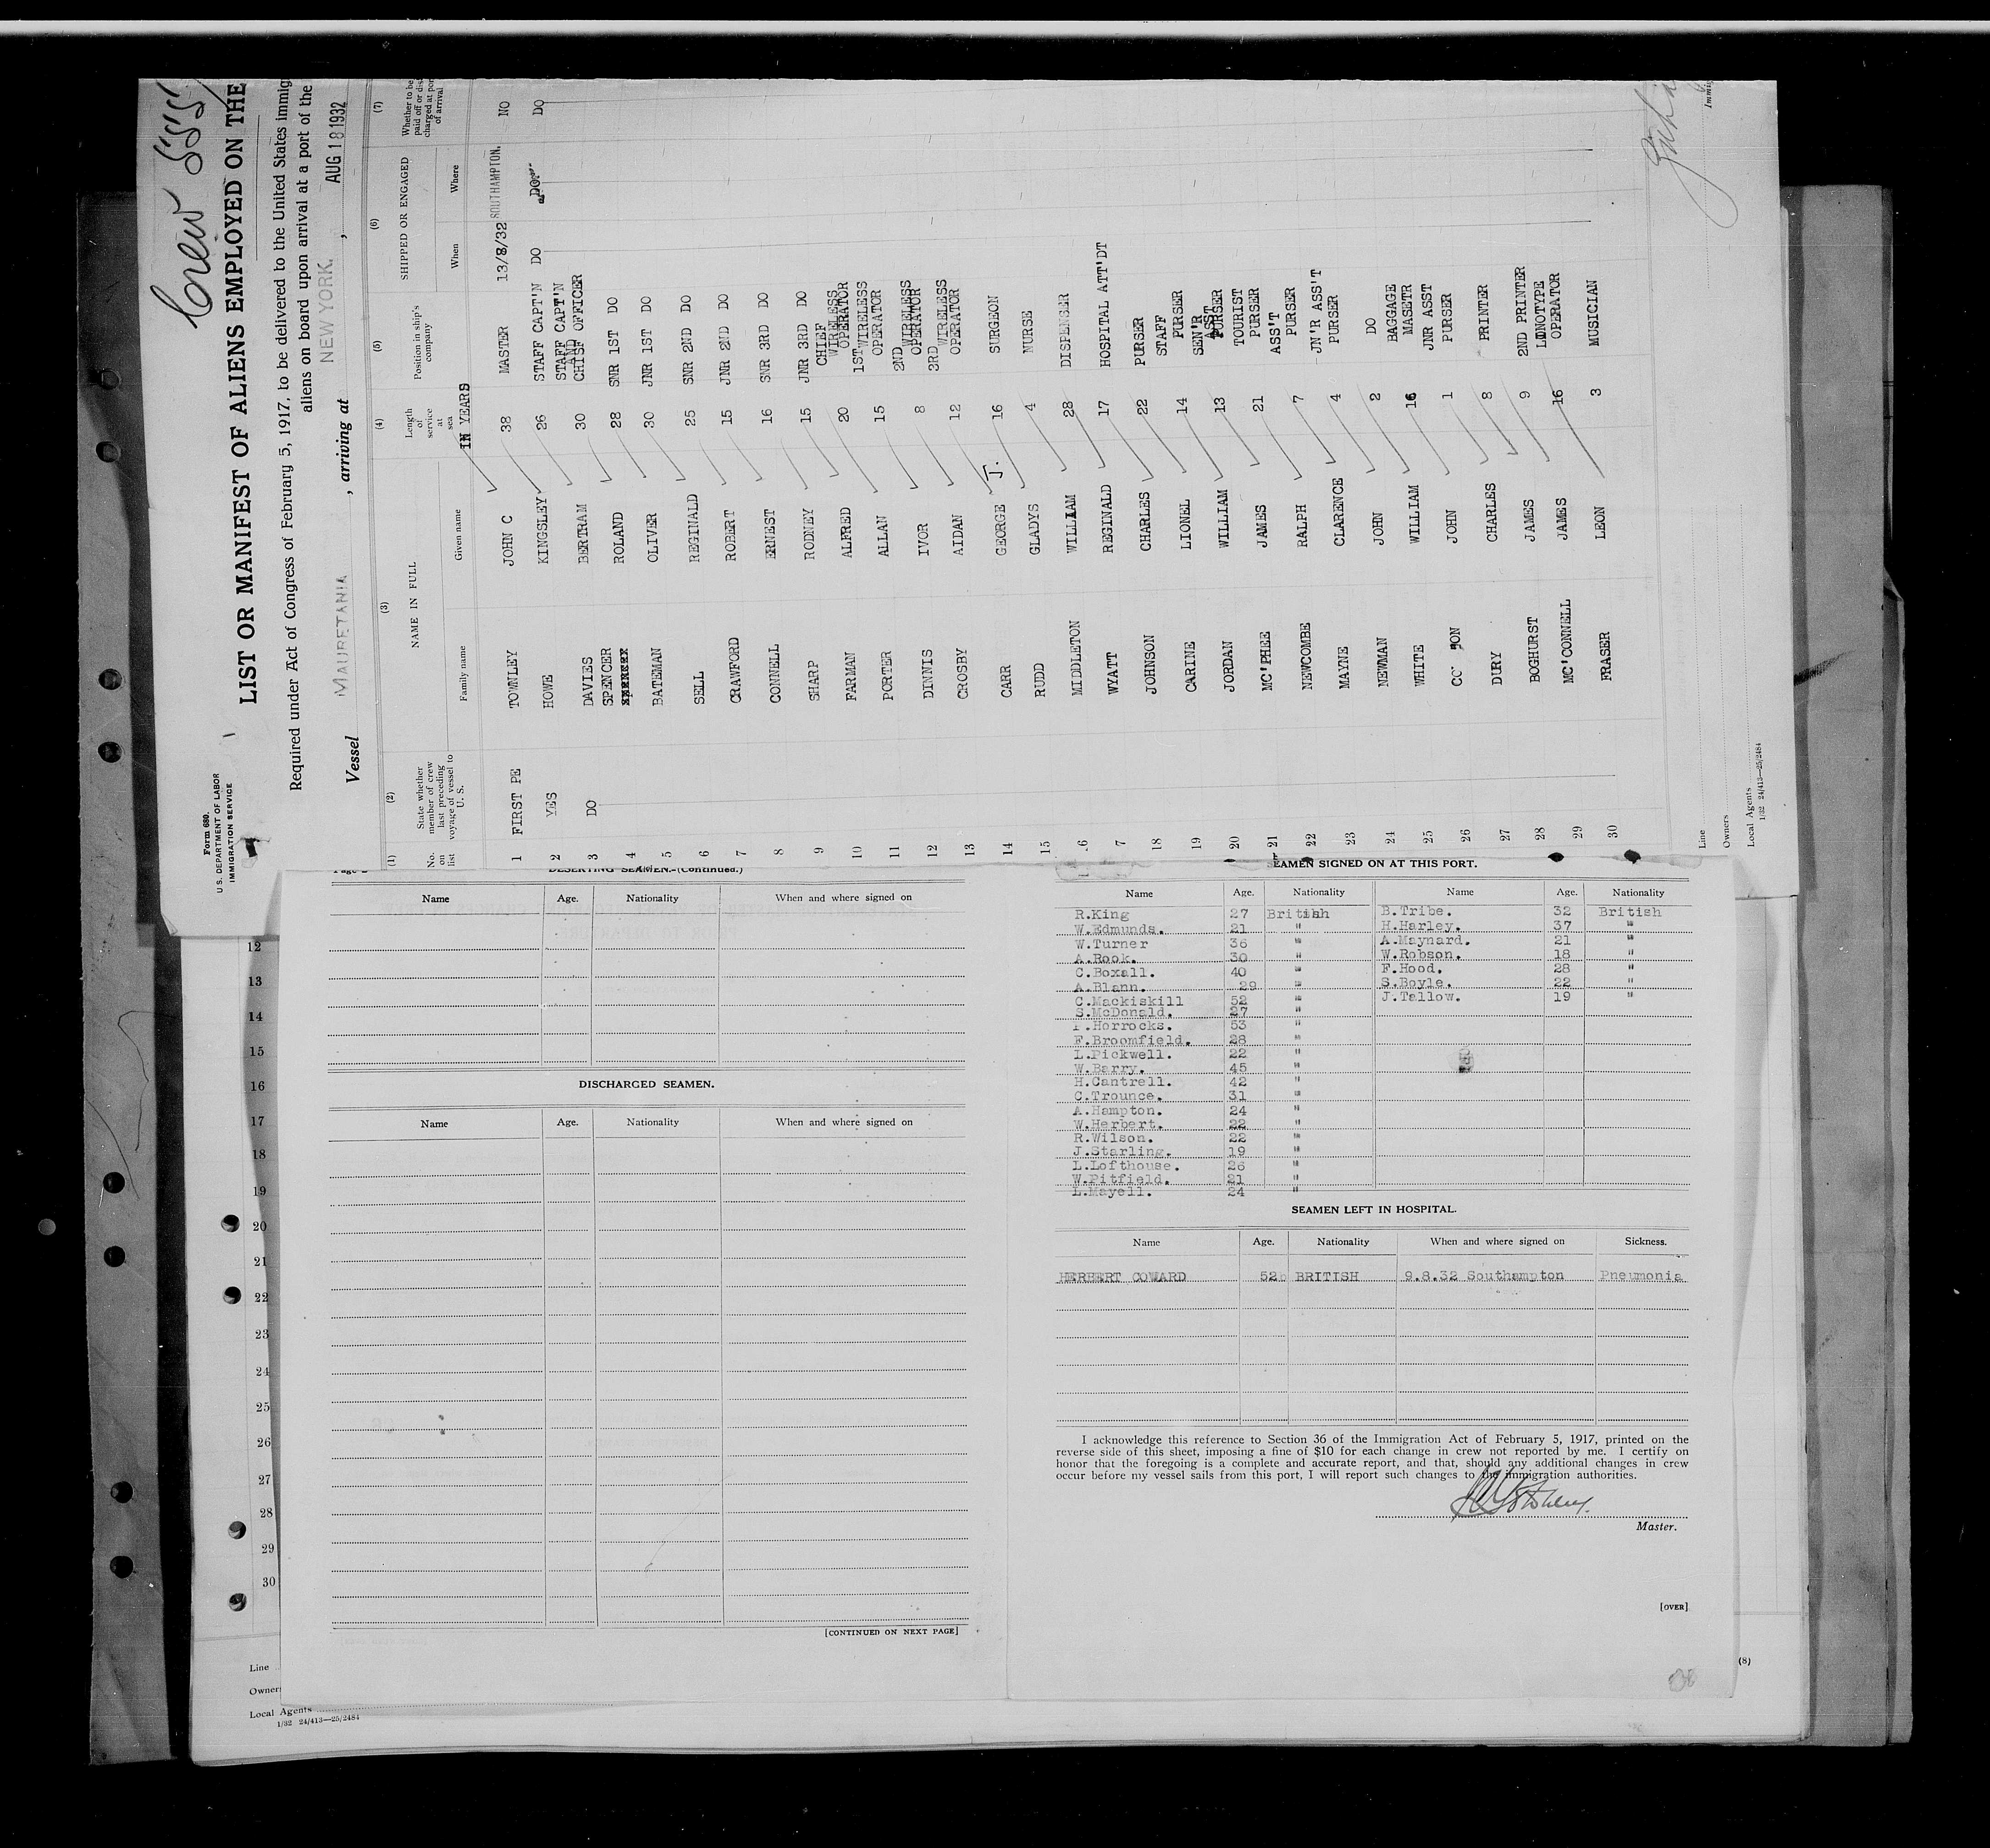 Crew 555
Form 680.
U.S. DEPARTMENT OF LABOR
IMMIGRATION SERVICE
LIST OR MANIFEST OF ALIENS EMPLOYED ON THE
Required under Act of Congress of February 5, 1917, to be delivered to the United States immig
aliens on board upon arrival at a port of the
Vessel MAURETANIA, arriving at NEW YORK, AUG 18 1932
(1) (2) (3) (4) (5) (6) (7)
No. on list
State whether member of crew last preceding voyage of vessel to U. S.
NAME IN FULL
Family name Given name
Length of service at sea
IN YEARS
Position in ship's company
SHIPPED OR ENGAGED
When Where
Whether to be paid off or dis charged at por of arrival
1 FIRST PE TOWNLEY JOHN C 38 MASTER 13/8/32 SOUTHAMPTON. NO
2 YES HOWE KINGSLEY 26 STAFF CAPT'N DO DO DO
3 DO DAVIES BERTRAM 30 STAFF CAPT'N AND CHISF OFFICER
4 SPENCER ROLAND 28 SNR 1ST DO
5 BATEMAN OLIVER 30 JNR 1ST DO
6 SELL REGINALD 25 SNR 2ND DO
7 CRAWFORD ROBERT 15 JNR 2ND DO
8 CONNELL ERNEST 16 SNR 3RD DO
9 SHARP RODNEY 15 JNR 3RD DO
10 FARMAN ALFRED 20 CHIEF WIRELESS OPERATOR
11 PORTER ALLAN 15 1ST WIRELESS OPERATOR
12 DINNIS IVOR 8 2ND WIRELESS OPERATOR
13 CROSBY AIDAN 12 3RD WIRELESS OPERATOR
14 CARR GEORGE J. 16 SURGEON
15 RUDD GLADYS 4 NURSE
6 MIDDLETON WILLIAM 28 DISPENSER
7 WYATT REGINALD 17 HOSPITAL ATT'DT
18 JOHNSON CHARLES 22 PURSER
19 CARINE LIONEL 14 STAFF PURSER
20 JORDAN WILLIAM 13 SEN'R ASST PURSER
21 MC'PHEE JAMES 21 TOURIST PURSER
22 NEWCOMBE RALPH 7 ASS'T PURSER
23 MAYNE CLARENCE 4 JN'R ASS'T PURSER
24 NEWMAN JOHN 2 DO
25 WHITE WILLIAM 16 BAGGAGE MASETR
26 JOHN 1 JNR ASST PURSER
27 DURY CHARLES 8 PRINTER
28 BOGHURST JAMES 9 2ND PRINTER
29 MC'CONNELL JAMES 16 LINOTYPE OPERATOR
30 FRASER LEON 3 MUSICIAN
Line
Owners
Local Agents
1/32 24/413—25/2484
Immig
DESERTING SEAMEN.—(Continued.)
Name Age. Nationality When and where signed on
DISCHARGED SEAMEN.
Name Age. Nationality When and where signed on
[CONTINUED ON NEXT PAGE]
SEAMEN SIGNED ON AT THIS PORT.
Name Age. Nationality Name Age. Nationality
R.King 27 British B.Tribe. 32 British
W.Edmunds. 21 " H.Harley. 37 "
W.Turner 36 " A.Maynard. 21 "
A.Rook. 30 " W.Robson. 18 "
C.Boxall. 40 " F.Hood. 28 "
A.Blann. 29 " S.Boyle. 22 "
C.Mackiskill 52 " J.Tallow. 19 "
S.McDonald. 27 "
.Horrocks. 53 "
F.Broomfield. 28 "
L.Pickwell. 22 "
W.Barry. 45 "
H.Cantrell. 42 "
C.Trounce. 31 "
A.Hampton. 24 "
W.Herbert. 22 "
R.Wilson. 22 "
J.Starling. 19 "
L.Lofthouse. 26 "
W.Pitfield. 21 "
L.Mayell. 24 "
SEAMEN LEFT IN HOSPITAL.
Name Age. Nationality When and where signed on Sickness.
HERBERT COWARD 52 BRITISH 9.8.32 Southampton Pneumonia
I acknowledge this reference to Section 36 of the Immigration Act of February 5, 1917, printed on the
reverse side of this sheet, imposing a fine of $10 for each change in crew not reported by me. I certify on
honor that the foregoing is a complete and accurate report, and that, should any additional changes in crew
occur before my vessel sails from this port, I will report such changes to the immigration authorities.
Master.
[OVER]
12
13
14
15
16
17
18
19
20
21
22
23
24
25
26
27
28
29
30
Line
Owner
Local Agents
1/32 24/413—25/2484
(8)